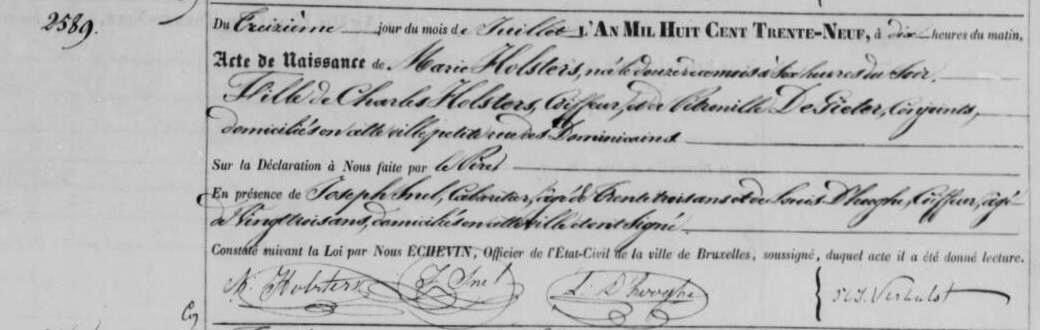 2589.
Du Treizième jour du mois de Juillet L'AN MIL HUIT CENT TRENTE-NEUF, à dix heures du matin,
Acte de Naissance de Marie Holsters, née le douze de ce mois à six heures du soir.
Fille de Charles Holsters, Coiffeur, et de Pétronille De Gieter, Conjoints,
domiciliés en cette ville petite rue des Dominicains
Sur la Déclaration à Nous faite par le Père
En présence de Joseph Snel, Cabaretier, âgé de trente trois ans et de Louis D'hooghe, Coiffeur, âgé
de vingt trois ans, domiciliés en cette ville et ont signé
Constaté suivant la Loi par Nous ECHEVIN, Officier de l'État-Civil de la ville de Bruxelles, soussigné, duquel acte il a été donné lecture.
Holsters J. Snel L. D'hooghe Verhulst